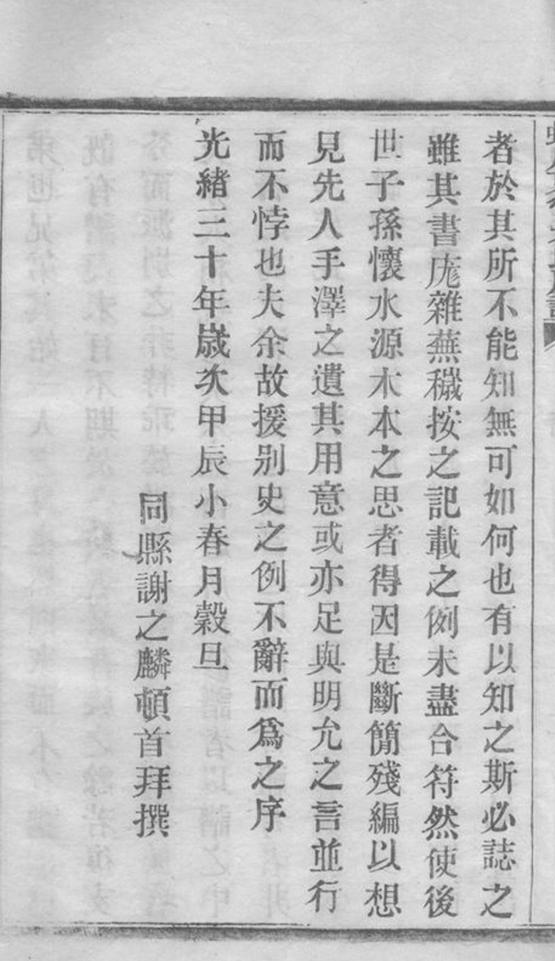 者於其所不能知無可如何也有以知之斯必誌之
雖其書庬雜蕪穢按之記載之例未盡合符然使後
世子孫懷水源木本之思者得因是斷簡殘編以想
見先人手澤之遺其用意或亦足與明允之言並行
而不悖也夫余故援别史之例不辭而爲之序
光緒三十年歲次甲辰小春月穀旦
同縣謝之麟頓首拜撰